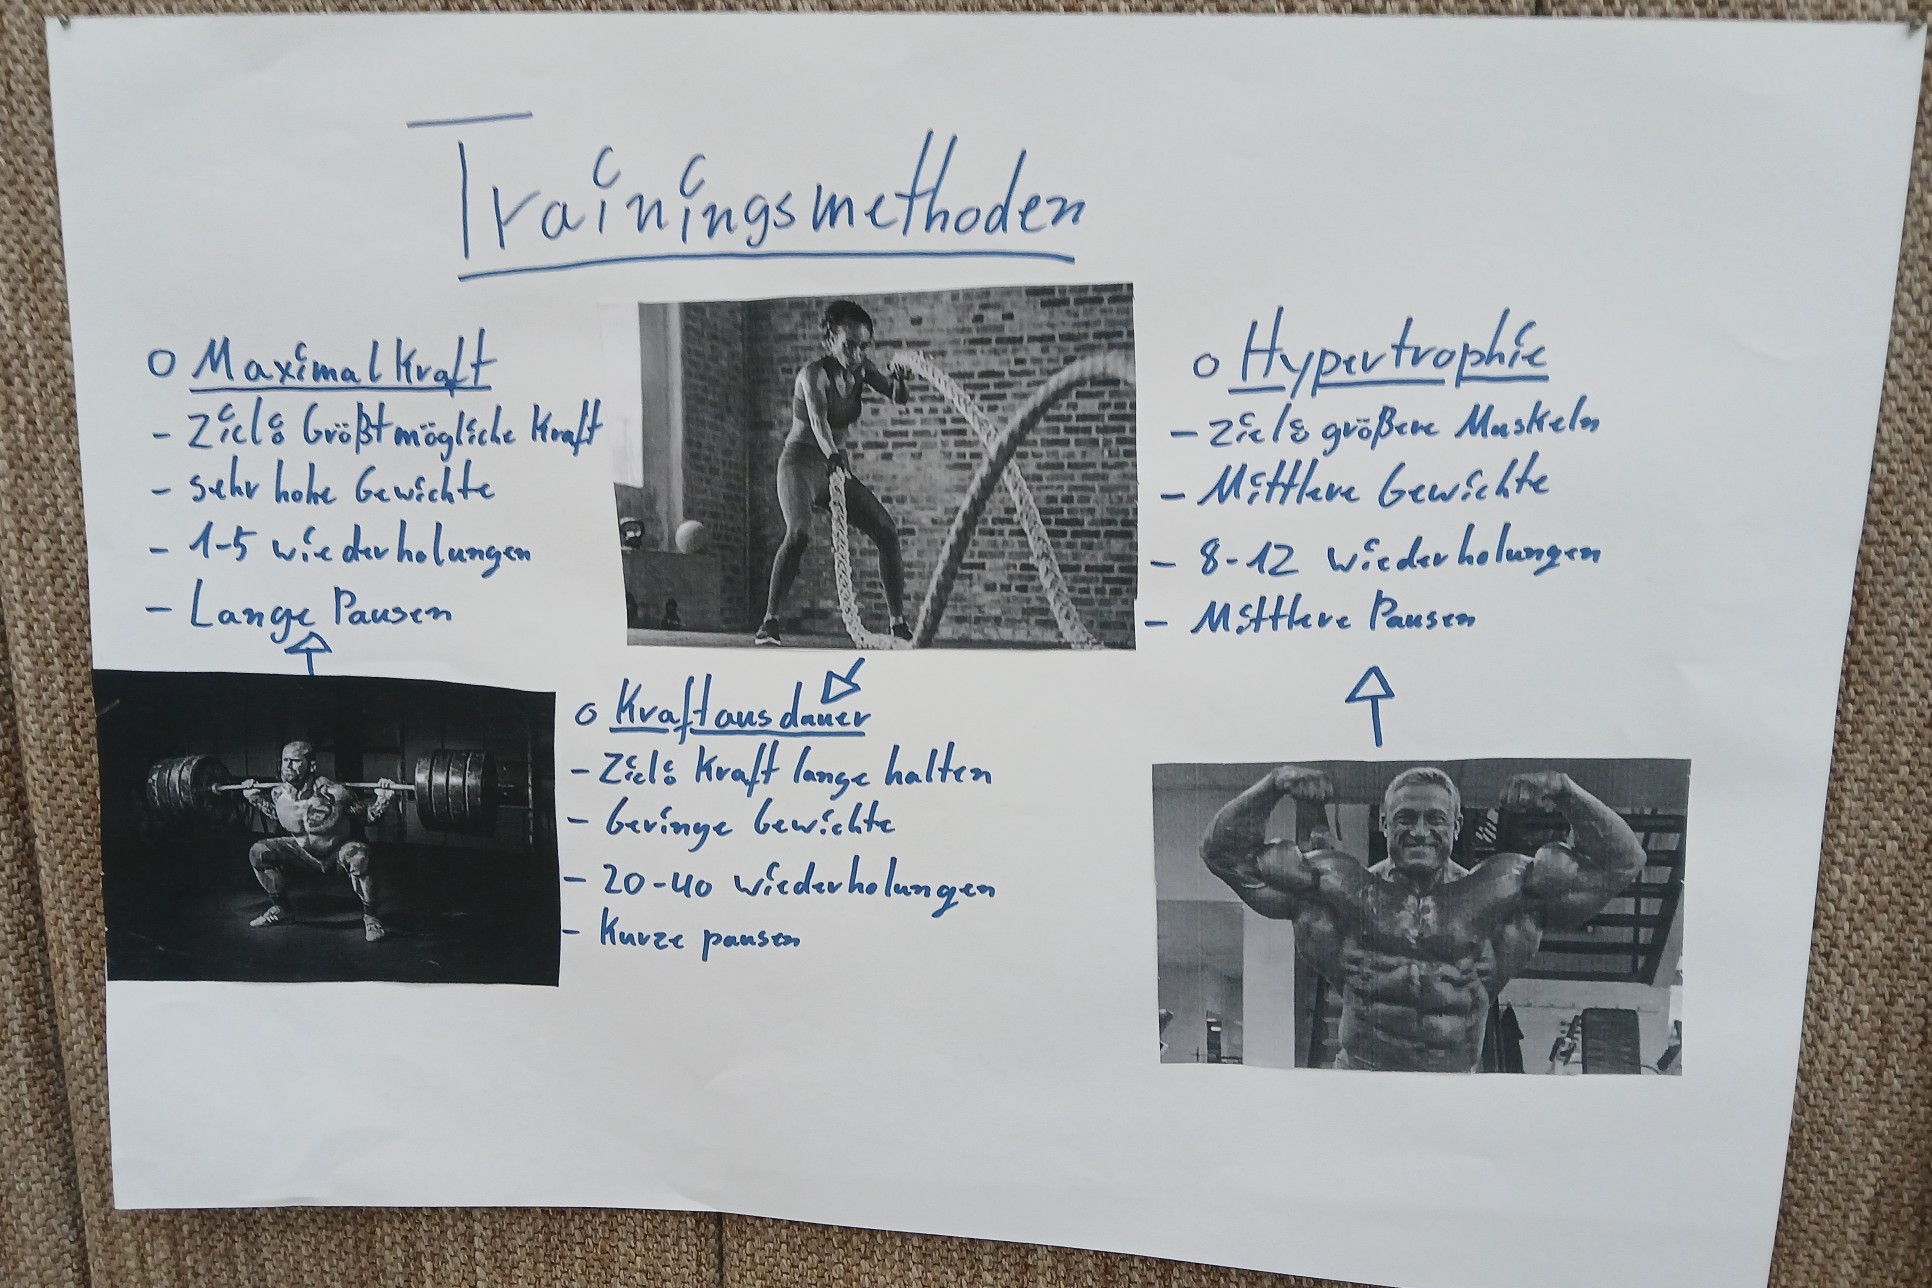 Trainingsmethoden
o Maximalkraft
- Ziel: Größtmögliche Kraft
- sehr hohe Gewichte
- 1-5 wiederholungen
- Lange Pausen
o Kraftausdauer
- Ziel: Kraft lange halten
- Geringe Gewichte
- 20-40 wiederholungen
- Kurze pausen
o Hypertrophie
- Ziel: größere Muskeln
- Mittlere Gewichte
- 8-12 wiederholungen
- Mittlere Pausen